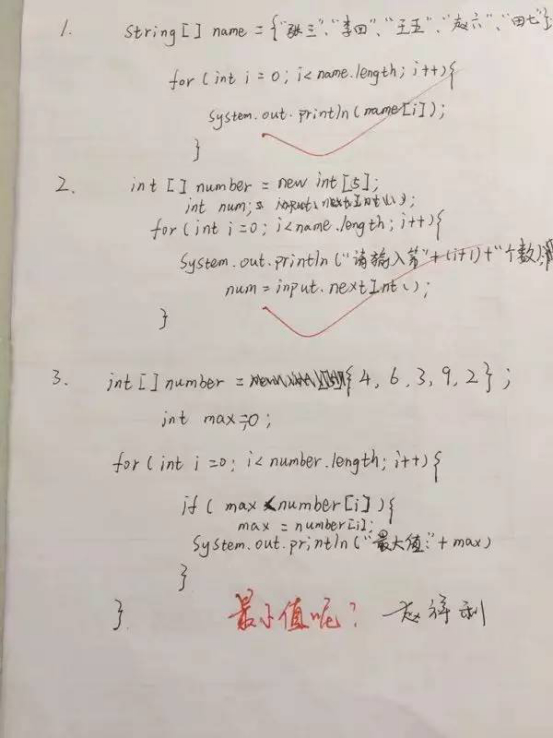 1. String[] name = {"张三"、"李四"、"王五"、"赵六"、"田七"};
for(int i = 0; i<name.length; i++){
System.out.println(name[i]);
}
2. int [] number = new int[5];
int num;
for(int i=0; i<name.length; i++){
System.out.println("请输入第"+(i+1)+"个数");
num = input.nextInt();
}
3. int[] number = {4, 6, 3, 9, 2};
int max=0;
for(int i=0; i<number.length; i++){
if( max <number[i]){
max = number[i];
System.out.print("最大值:"+max)
}
}
最小值呢?